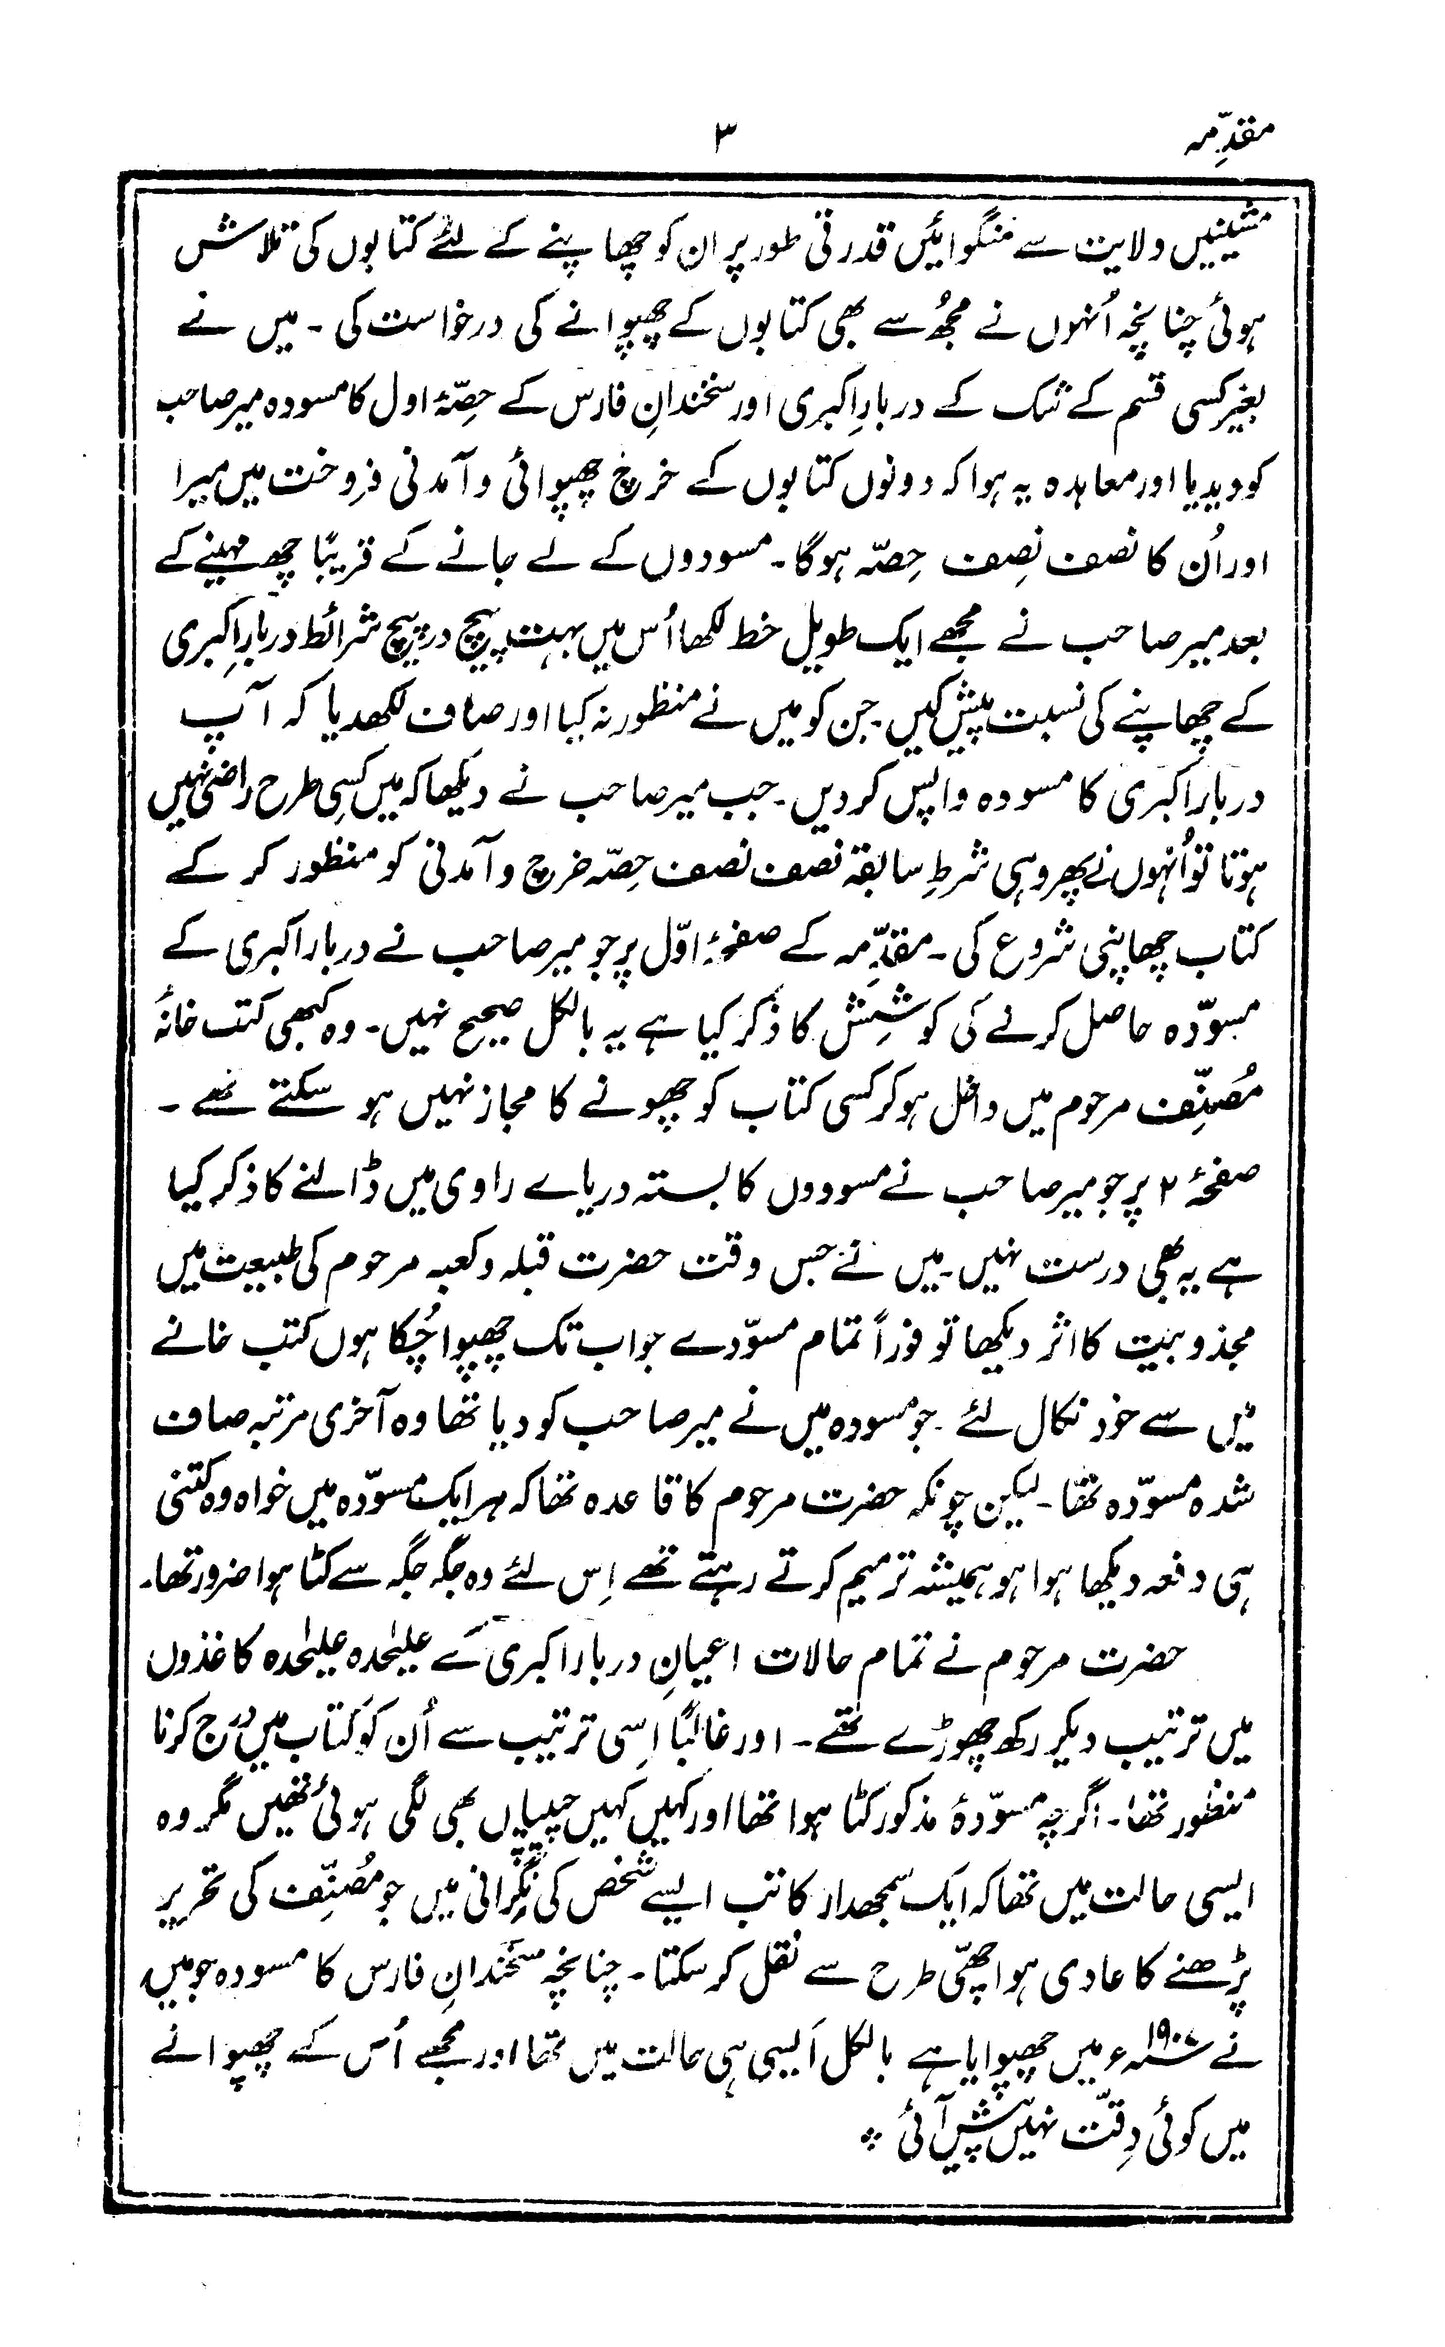 مقدّمہ
۳
مشینیں ولایت سے منگوائیں قدرتی طور پر ان کو چھاپنے کے لئے کتابوں کی تلاش
ہوئی چنانچہ اُنہوں نے مجھُ سے بھی کتابوں کے چھپوانے کی درخواست کی ۔ میں نے
بغیر کسی قسم کے شک کے دربارِ اکبری اور سخندانِ فارس کے حِصّۂ اول کا مسودہ میر صاحب
کو دیدیا اور معاہدہ یہ ہوا کہ دونوں کتابوں کے خرچ چھپوائی و آمدنی فروخت میں میرا
اور اُن کا نصف نِصف حِصّہ ہوگا ۔ مسودوں کے لے جانے کے قریبًا چھ مہینے کے
بعد میر صاحب نے مجھے ایک طویل خط لکھا اُس میں بہت پیچ در پیچ شرائط دربارِ اکبری
کے چھاپنے کی نسبت پیش کیں ۔ جن کو میں نے منظور نہ کیا اور صاف لکھدیا کہ آپ
دربار اکبری کا مسودہ واپس کر دیں ۔ جب میر صاحب نے دیکھا کہ میں کسِی طرح راضی نہیں
ہوتا تو اُنہوں نے پھر وہی شرطِ سابقہ نصف نصف حِصّہ خرچ و آمدنی کو منظور کر کے
کتاب چھاپنی شروع کی ۔ مقدِّمہ کے صفحۂ اوّل پر جو میر صاحب نے دربار اکبری کے
مسوّدہ حاصل کرنے کی کوشِش کا ذکر کیا ہے یہ بالکل صحیح نہیں ۔ وہ کبھی کتب خانۂ
مُصنّف مرحوم میں داخل ہو کر کسی کتاب کو چھونے کا مجاز نہیں ہو سکتے تھے ۔
صفحۂ ۲ پر جو میر صاحب نے مسوودں کا بستہ دریاے راوی میں ڈالنے کا ذکر کیا
ہے یہ بھی درست نہیں ۔ میں نے جس وقت حضرت قبلہ و کعبہ مرحوم کی طبیعت میں
مجذوبیت کا اثر دیکھا تو فوراً تمام مسوّدے جو اب تک چھپوا چُکا ہوں کتب خانے
میں سے خود نکال لئے ۔ جو مسودہ میں نے میر صاحب کو دیا تھا وہ آخری مرتبہ صاف
شدہ مسوّدہ تھا ۔ لیکن چونکہ حضرت مرحوم کا قاعدہ تھا کہ ہر ایک مسوّدہ میں خواہ وہ کتنی
ہی دفعہ دیکھا ہوا ہو ہمیشہ ترمیم کرتے رہتے تھے اِس لئے وہ جگہ جگہ سے کٹا ہوا ضرور تھا ۔
حضرت مرحوم نے تمام حالات اعیانِ دربار اکبری کے علیٰحدہ علیٰحدہ کاغذوں
میں ترتیب دیکر رکھ چھوڑے تھے ۔ اور غالبًا اِسی ترتیب سے اُن کو کتاب میں درج کرنا
منظور تھا ۔ اگرچہ مسوّدۂ مذکور کٹا ہوا تھا اور کہیں کہیں چیپیاں بھی لگی ہوئی تھیں مگر وہ
ایسی حالت میں تھا کہ ایک سمجھدار کاتب ایسے شخص کی نگِرانی میں جو مُصنِّف کی تحریر
پڑھنے کا عادی ہو اچھّی طرح سے نقل کر سکتا ۔ چنانچہ سخندانِ فارس کا مسودہ جو میں
نے ۱۹۰۷ء میں چھپوایا ہے بالکل اَیسی ہی حالت میں تھا اور مجھے اُس کے چھپوانے
میں کوئی دِقّت نہیں پیش آئی ۔